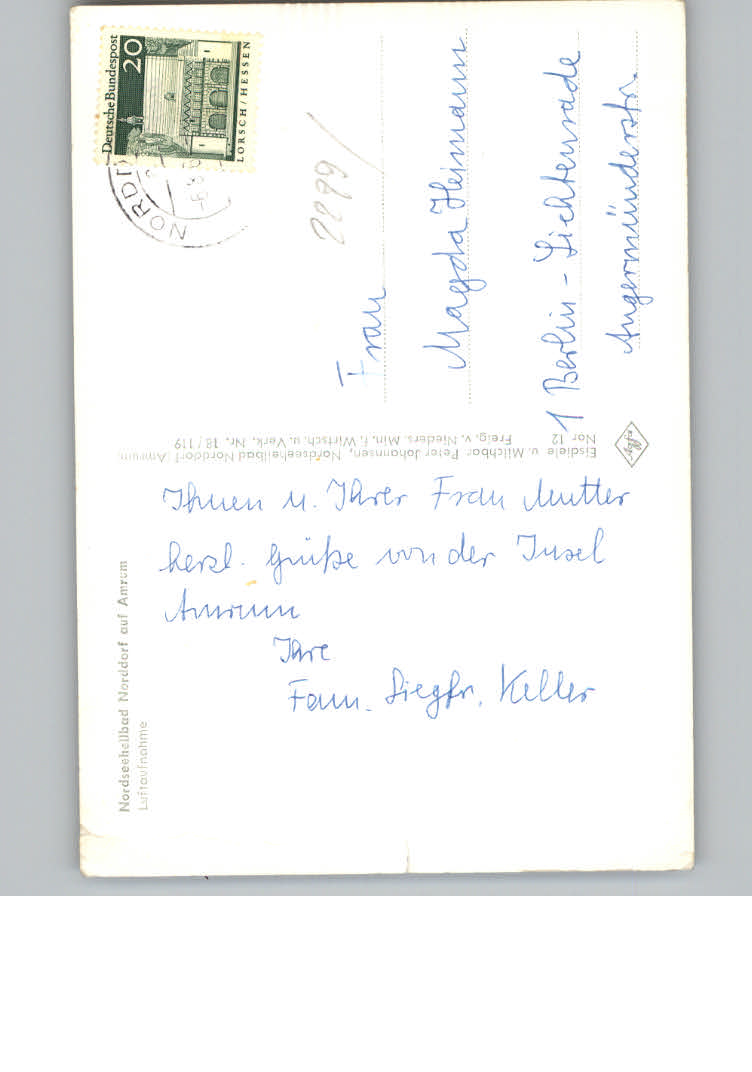 Nordseeheilbad Norddorf auf Amrum
Luftaufnahme
Ihnen u. Ihrer Frau Mutter
herzl. Grüße von der Insel
Amrum
Ihre
Fam. Siegfr. Keller
Eisdiele u. Milchbar Peter Johannsen, Nordseeheilbad Norddorf (Amrum)
Nor 12 Freig. v. Nieders. Min. f. Wirtsch. u. Verk. Nr. 18/119
Deutsche Bundespost
20
LORSCH/HESSEN
2299/
Frau
Magda Heimann
1 Berlin-Lichtenrade
Angermünderstr.